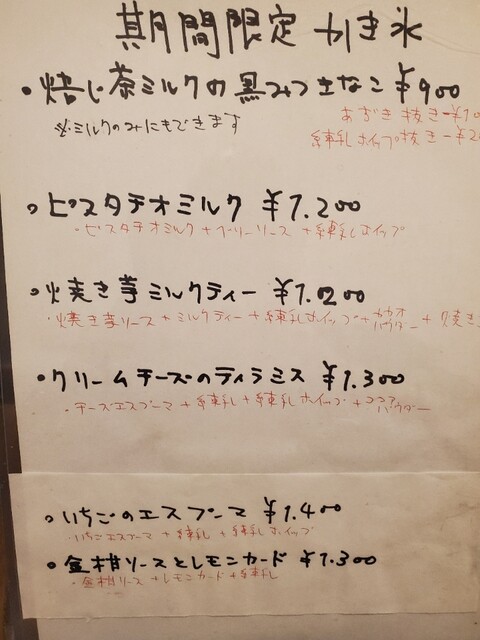 期間限定 かき氷
・焙じ茶ミルクの黒みつきなこ ¥900
あずき抜き-¥10
※ミルクのみにもできます
練乳ホイップ抜き-¥20
・ピスタチオミルク ¥1.200
・ピスタチオミルク+ベリーソース+練乳ホイップ
・焼き芋ミルクティー ¥1.200
・焼き芋ソース+ミルクティー+練乳ホイップ+カカオパウダー+焼き
・クリームチーズのティラミス ¥1.300
・チーズエスプーマ+練乳+練乳ホイップ+ココアパウダー
・いちごのエスプーマ ¥1.400
・いちごエスプーマ+練乳+練乳ホイップ
・金柑ソースとレモンカード ¥1.300
・金柑ソース+レモンカード+練乳